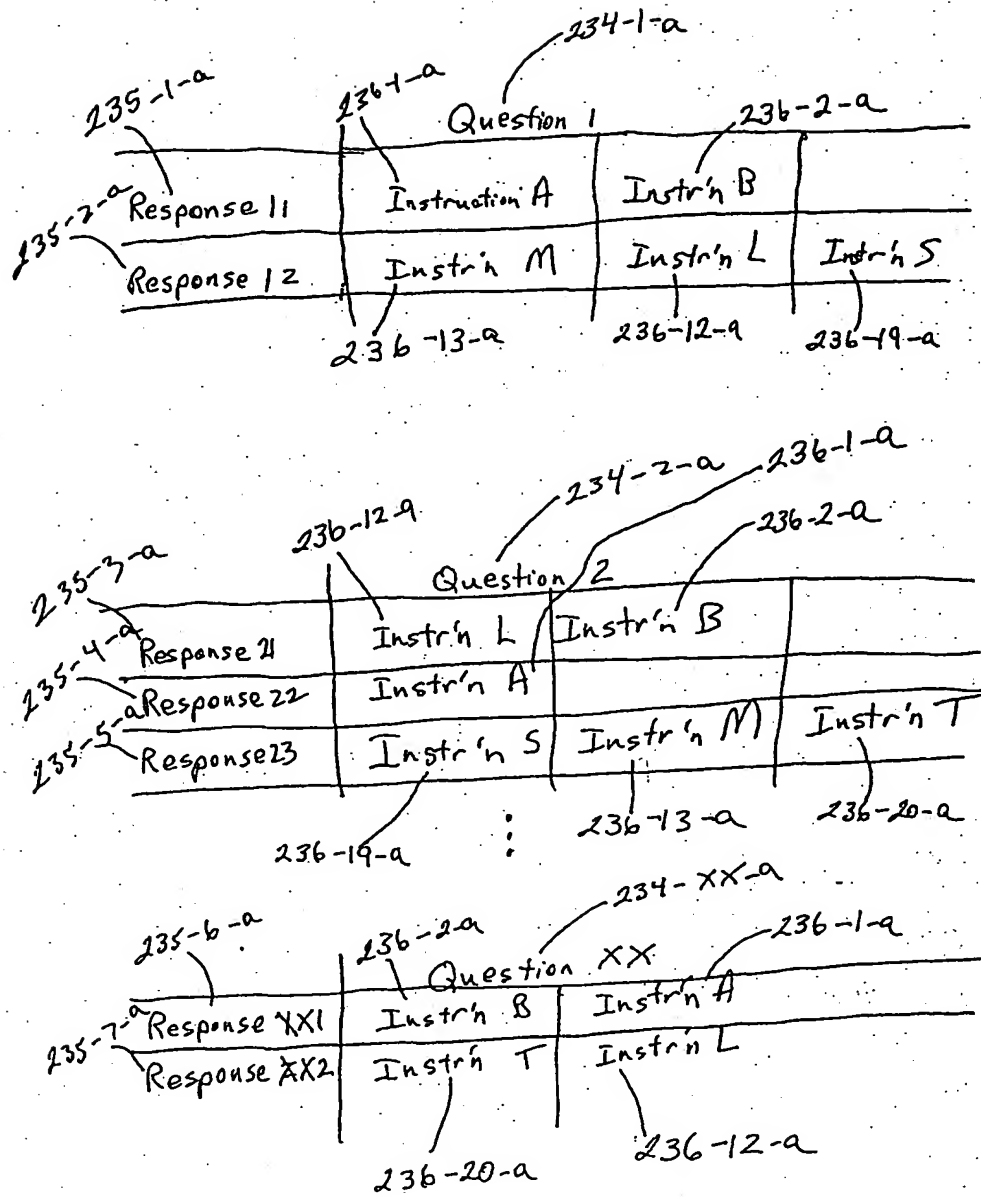 234-1-a
235-1-a 236-1-a Question 1 236-2-a
235-2-a Response 11 Instruction A Instr'n B
Response 12 Instr'n M Instr'n L Instr'n S
236-13-a 236-12-a 236-19-a
234-2-a 236-1-a
236-12-a 236-2-a
235-3-a Question 2
Response 21 Instr'n L Instr'n B
235-4-a Response 22 Instr'n A
235-5-a Response 23 Instr'n S Instr'n M Instr'n T
236-19-a 236-13-a 236-20-a
234-XX-a
235-6-a 236-2-a Question XX 236-1-a
235-7-a Response XX1 Instr'n B Instr'n A
Response XX2 Instr'n T Instr'n L
236-20-a 236-12-a